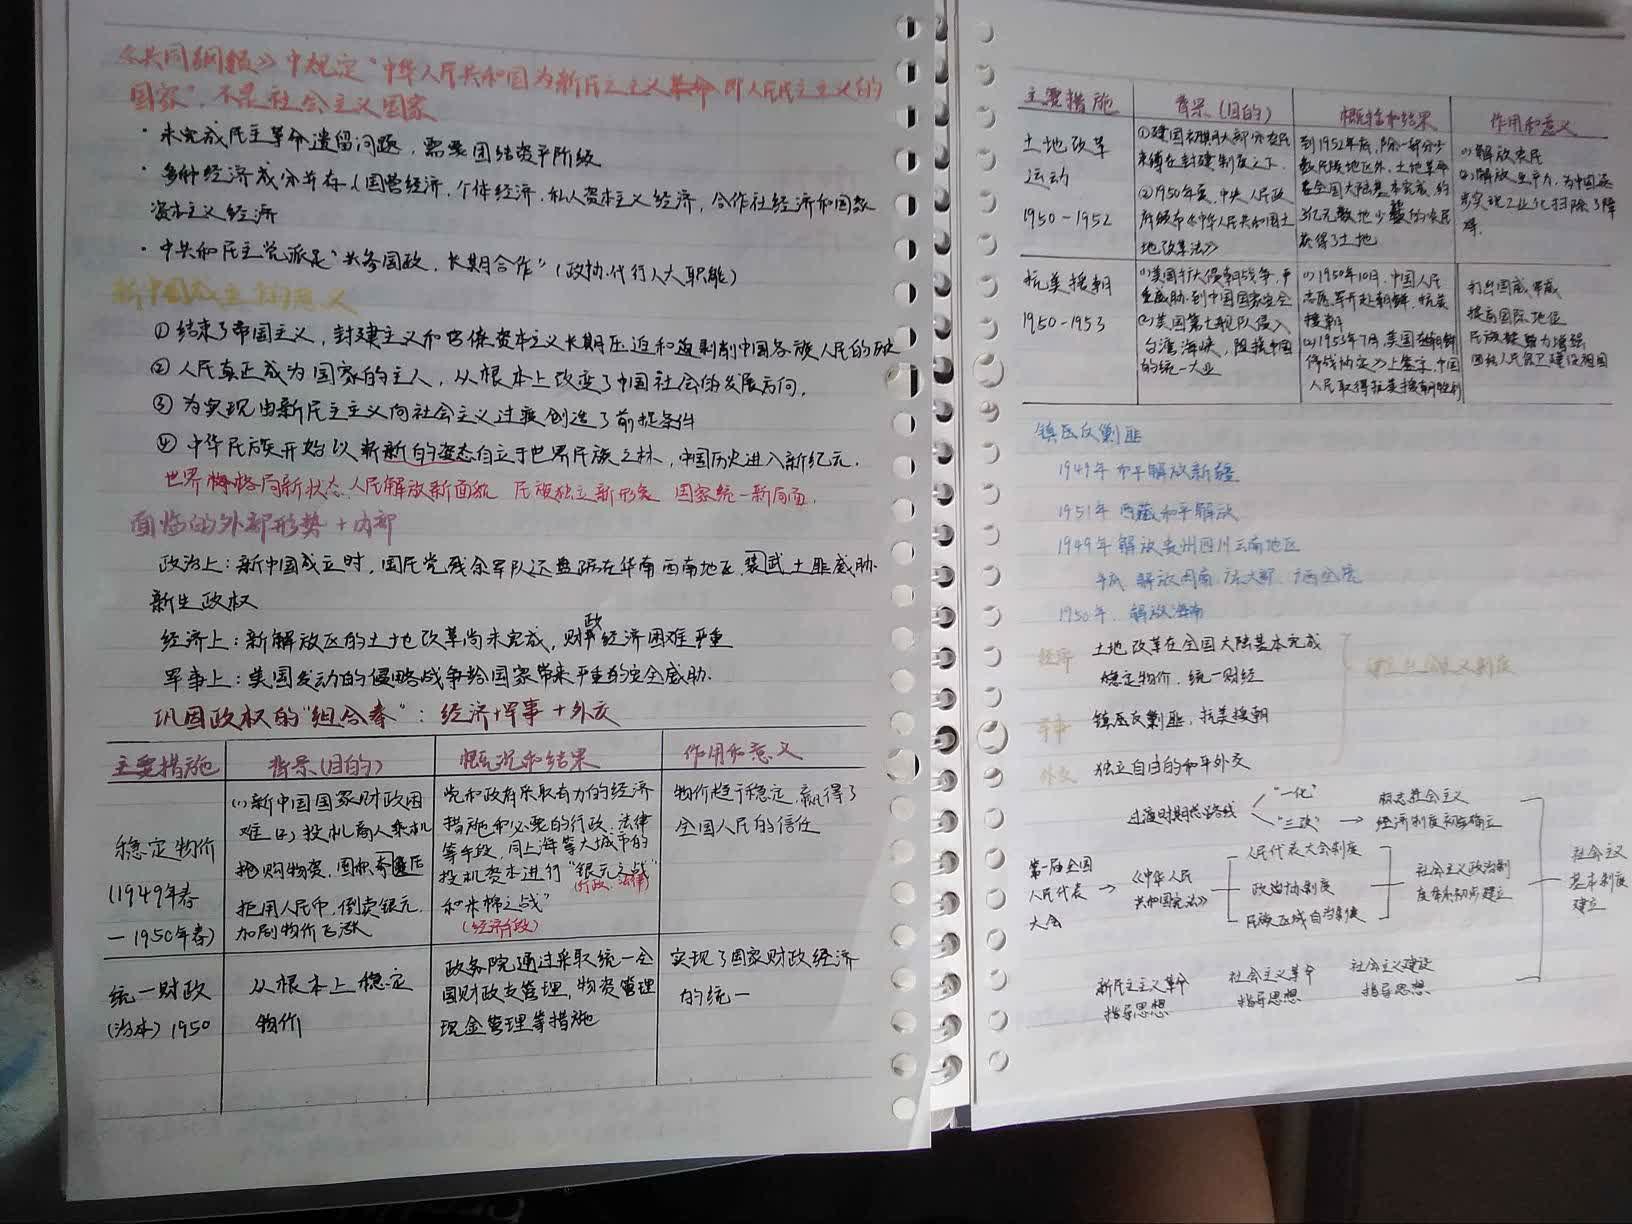 《共同纲领》中规定"中华人民共和国为新民主主义革命即人民民主主义的
国家",不是社会主义国家
· 未完成民主革命遗留问题,需要团结资产阶级
· 多种经济成分并存(国营经济,个体经济,私人资本主义经济,合作社经济和国家
资本主义经济
· 中共和民主党派是"共务国政,长期合作"(政协代行人大职能)
新中国成立的意义
① 结束了帝国主义,封建主义和官僚资本主义长期压迫和剥削中国各族人民的历史
② 人民真正成为国家的主人,从根本上改变了中国社会的发展方向,
③ 为实现由新民主主义向社会主义过渡创造了前提条件
④ 中华民族开始以崭新的姿态自立于世界民族之林,中国历史进入新纪元.
世界格局新状态 人民解放新面貌 民族独立新形象 国家统一新局面.
面临的外部形势+内部
政治上:新中国成立时,国民党残余军队还盘踞在华南西南地区,武装土匪威胁
新生政权
经济上:新解放区的土地改革尚未完成,财政经济困难严重
军事上:美国发动的侵略战争给国家带来严重的安全威胁.
巩固政权的"组合拳":经济+军事+外交
主要措施 背景(目的) 概况和结果 作用和意义
稳定物价
(1949年春
—1950年春)
(1)新中国国家财政困
难(2)投机商人乘机
抢购物资,囤积奇
拒用人民币,倒卖银元,
加剧物价飞涨
党和政府采取有力的经济
措施和必要的行政、法律
等手段,同上海等大城市的
投机资本进行"银元之战"
(行政、法律)
和米棉之战"
(经济手段)
物价趋于稳定,赢得了
全国人民的信任
统一财政
(治本)1950
从根本上稳定
物价
政务院通过采取统一全
国财政支管理,物资管理
现金管理等措施
实现了国家财政经济
的统一
主要措施 背景(目的) 概括和结果 作用和意义
土地改革
运动
1950-1952
①建国初期大部分农民
束缚在封建制度之下,
②1950年夏,中央人民政
府颁布《中华人民共和国土
地改革法》
到1952年底,除一部分少
数民族地区外,土地革命
在全国大陆基本完成,约
3亿无数地少的农民
获得了土地
(1)解放农民
(2)解放生产力,为中国逐
步实现工业化扫除了障
碍.
抗美援朝
1950-1953
(1)美国扩大侵朝战争,严
重威胁到中国国家安全
(2)美国第七舰队侵入
台湾海峡,阻挠中国
的统一大业
(1)1950年10月,中国人民
志愿军开赴朝鲜,抗美
援朝
(2)1953年7月,美国在朝鲜
停战协定》上签字,中国
人民取得抗美援朝胜利
打出国威,军威
提高国际地位
民族凝聚力增强
团结人民保卫建设祖国
镇压反剿匪
1949年 和平解放新疆
1951年 西藏和平解放
1949年 解放贵州四川云南地区
1950年,解放海南
经济 土地改革在全国大陆基本完成
稳定物价,统一财经
军事 镇压反剿匪,抗美援朝
外交 独立自由的和平外交
过渡时期总路线 "一化"
"三改"
标志社会主义
经济制度初步确立
第一届全国
人民代表
大会
《中华人民
共和国宪法》
人民代表大会制度
政治协制度
民族区域自治制度
社会主义政治制
度体系初步建立
社会主义
基本制度
建立
新民主主义革命
指导思想
社会主义革命
指导思想
社会主义建设
指导思想